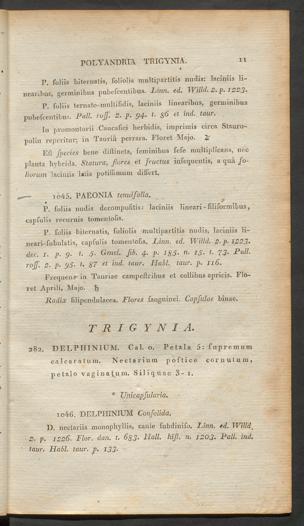 POLYANDRIA TRIGYNIA. 11
P. foliis biternatis, foliolis multipartitis nudis: laciniis li-
nearibus, germinibus pubeſcentibus. Linn. ed. Willd. 2. p. 1223.
P. foliis ternato-multifidis, laciniis linearibus, germinibus
pubeſcentibus. Pall. roſſ. 2. p. 94. t. 86 et ind. taur.
In promontorii Caucaſici herbidis, imprimis circa Stauro-
polin reperitur; in Tauriâ perrara. Floret Majo. ♃
Eſt ſpecies bene diſtincta, feminibus ſeſe multiplicans, nec
planta hybrida. Statura, flores et fructus inſequentis, a quâ fo-
liorum laciniis latis potiſſimum differt.
1045. PAEONIA tenuifolia.
P. foliis nudis decompoſitis: laciniis lineari-filiformibus,
capſulis recurvis tomentoſis.
P. foliis biternatis, foliolis multipartitis nudis, laciniis li-
neari-ſubulatis, capſulis tomentoſis. Linn. ed. Willd. 2. p. 1223.
dec. 1. p. 9. t. 5. Gmel. ſib. 4. p. 185. n. 15. t. 73. Pall.
roſſ. 2. p. 95. t. 87 et ind. taur. Habl. taur. p. 116.
Frequens in Tauriae campeſtribus et collibus apricis. Flo-
ret Aprili, Majo.
Radix filipendulacea. Flores ſanguinei. Capſulae binae.
TRIGYNIA.
282. DELPHINIUM. Cal. 0. Petala 5: ſupremum
calcaratum. Nectarium poſtice cornutum,
petalo vaginatum. Siliquae 3-1.
* Unicapſularia.
1046. DELPHINIUM Conſolida.
D. nectariis monophyllis, caule ſubdiviſo. Linn. ed. Willd.
2. p. 1226. Flor. dan. t. 683. Hall. hiſt. n. 1203. Pall. ind.
taur. Habl. taur. p. 133.